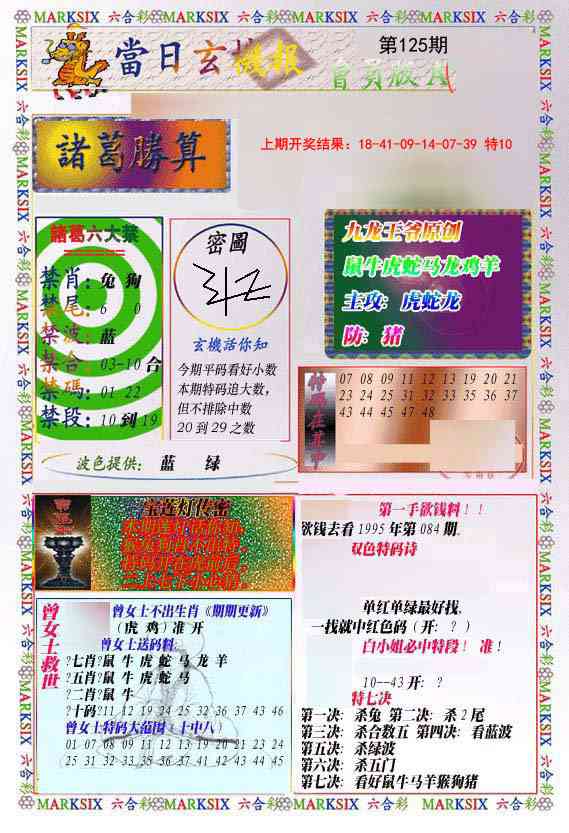 MARKSIX 六合彩 MARKSIX 六合彩 MARKSIX 六合彩 MARKSIX 六合彩
當日玄機報
第125期
會員版A
諸葛勝算
上期开奖结果：18-41-09-14-07-39 特10
諸葛六大禁
禁肖：兔 狗
禁尾：6 0
禁波：蓝
禁合：03-10 合
禁碼：01 22
禁段：10 到 19
密圖
玄機活你知
今期平码看好小数
本期特码追大数，
但不排除中数
20 到 29 之数
波色提供： 蓝 绿
九龙王爷原创
鼠牛虎蛇马龙鸡羊
主攻：虎蛇龙
防：猪
特码在其中
07 08 09 11 12 13 19 20 21
23 24 25 31 32 33 35 36 37
43 44 45 47 48
宝莲灯传密
曾女士救世
曾女士不出生肖《期期更新》
（虎 鸡）准 开
曾女士送码料:
?七肖?鼠 牛 虎 蛇 马 龙 羊
?五肖?鼠 牛 虎 蛇 马
?二肖?鼠 牛
?十码?11 12 19 24 25 32 36 37 43 46
曾女士特码大范围（十中八）
01 07 08 09 11 12 13 19 20 21 23 24
25 31 32 33 35 36 37 41 42 43 44 45
第一手欲钱料！！
欲钱去看 1995 年第 084 期.
双色特码诗
单红单绿最好找.
一找就中红色码（开：？）
白小姐必中特段！ 准！
10--43 开：？
特七决
第一决：杀兔 第二决：杀 2 尾
第三决：杀合数五 第四决：看蓝波
第五决：杀绿波
第六决：杀五门
第七决：看好鼠牛马羊猴狗猪
MARKSIX 六合彩 MARKSIX 六合彩 MARKSIX 六合彩 MARKSIX 六合彩